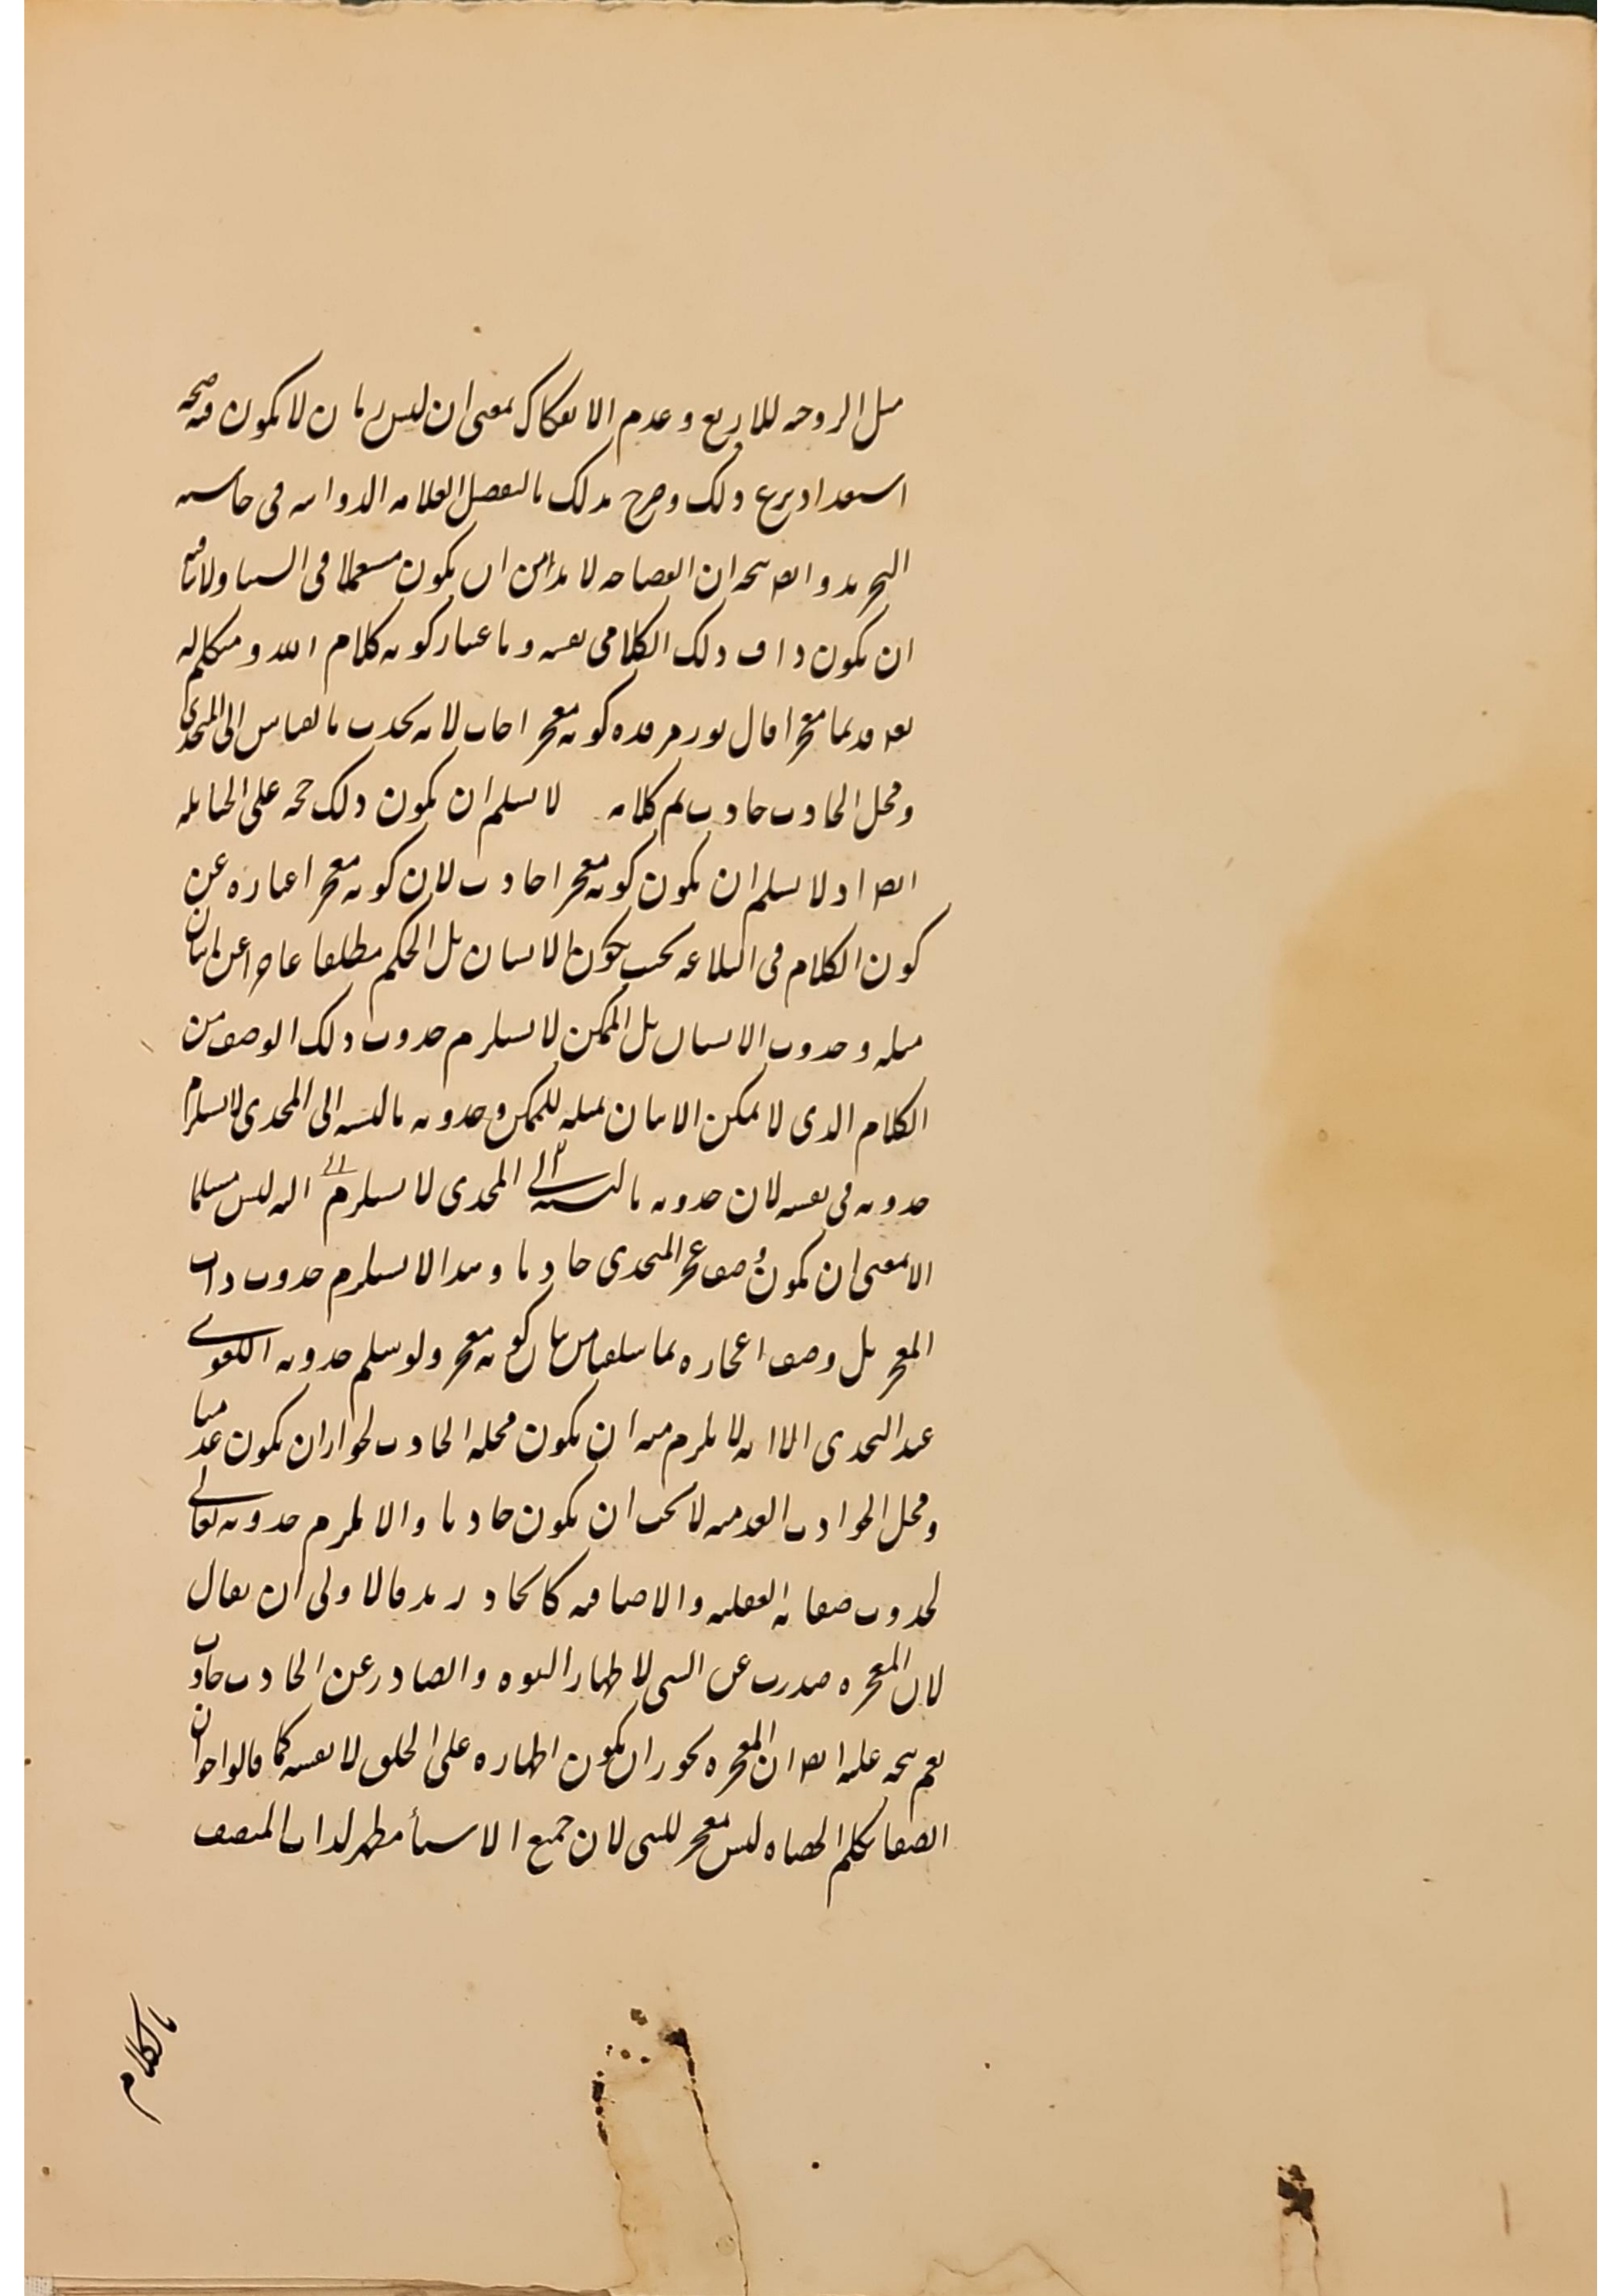 مثل الزوجيه للاربع وعدم الانفكاك بمعنى ان ليس زمان لا يكون فيه صحه
استعداد ذلك وصرح بذلك بالتفصيل العلامه الدوانى فى حاشيه
التجريد وايضا يتجه ان الفصاحه لا بد من ان يكون مستعملا فى ولا
ان يكون ذات ذلك الكلام فى نفسه وباعتبار كونه كلام الله ومتكلم له
بعد قديما معجزا قال نور مرقده كونه معجزا حادث لانه يحدث بالقياس الى المتحدى
ومحل الحادث حادث تم كلامه لا نسلم ان يكون ذلك حجه على الحنابله
ايضا اذ لا نسلم ان يكون كونه معجزا حادث لان كونه معجزا عباره عن
كون الكلام فى البلاغه بحيث يكون الانسان بل الحكم مطلقا عاجزا عن اتيان
مثله وحدوث الانسان بل الممكن لا يستلزم حدوث ذلك الوصف من
الكلام الذى لا يمكن الاتيان بمثله للممكن وحدوثه بالنسبه الى المتحدى لا يستلزم
حدوثه فى نفسه لان حدوثه بالنسبه الى المتحدى لا يستلزم انه ليس مسلما
الا بمعنى ان يكون وصف عجز المتحدى حادثا وهذا لا يستلزم حدوث ذات
المعجز بل وصف اعجازه بما كونه معجز ولو سلم حدوثه اللغوى
عند التحدى الا انه لا يلزم منه ان يكون محله الحادث لجواز ان يكون عدميا
ومحل الحوادث العدميه لا يجب ان يكون حادثا والا يلزم حدوثه تعالى
لحدوث صفاته الفعليه والاضافيه كايجاد زيد فالاولى ان يقال
لان المعجزه صدرت عن النبى لاظهار النبوه والصادر عن الحادث حادث
نعم يتجه عليه ايضا ان المعجزه يجوز ان يكون اظهاره على الخلق لا نفسه كما قالوا
ايضا تكلم الحصاه ليس معجز للنبى لان جميع الاسماء مظهر لذات المتصف
بالكلام